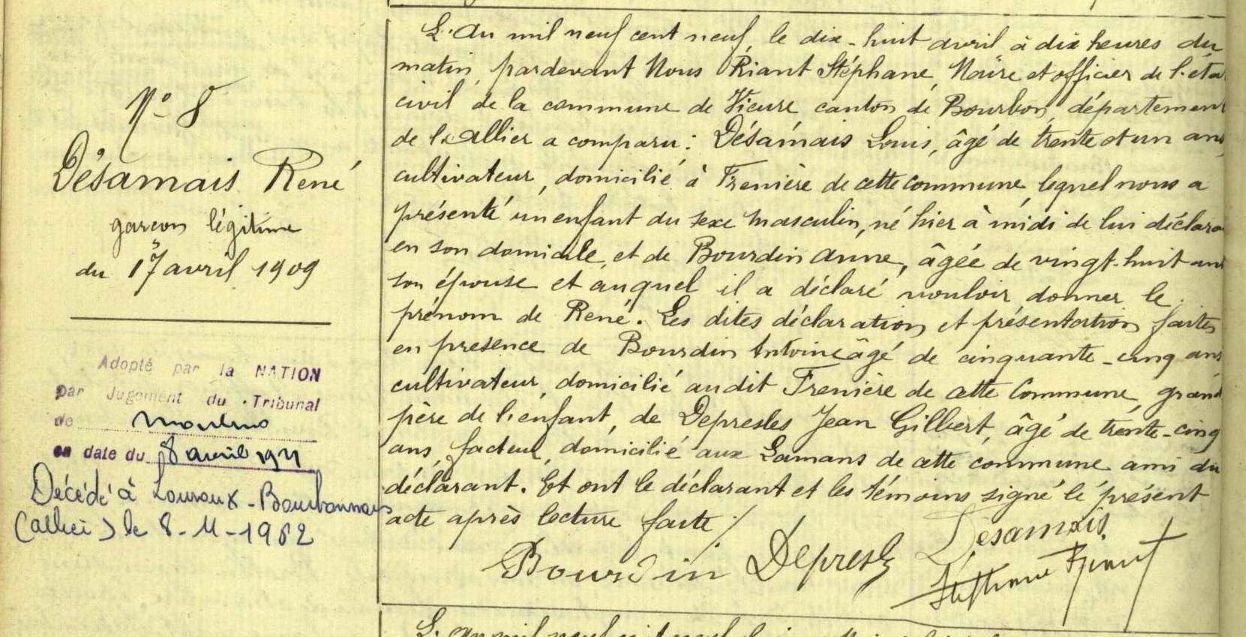 N° 8
Désamais René
garcon légitime
du 17 avril 1909
Adopté par la NATION
par Jugement du Tribunal
de Moulins
en date du 8 avril 1921
Décédé à Louroux-Bourbonnais
(Allier) le 8-11-1962
L'an mil neuf cent neuf, le dix-huit avril à dix heures du
matin, pardevant Nous Riant Stéphane, Maire et officier de l'eta
civil de la commune de Vieure, canton de Bourbon, département
de l'allier a comparu: Désamais Louis, âgé de trente et un ans
cultivateur, domicilié à Frenière de cette commune lequel nous a
présenté un enfant du sexe masculin, né hier à midi de lui déclara
en son domicile, et de Bourdin Anne, âgée de vingt-huit ans
son épouse et auquel il a déclaré vouloir donner le
prénom de René. Les dites déclaration et présentation faites
en présence de Bourdin Antoine âgé de cinquante-cinq ans
cultivateur, domicilié audit Frenière de cette commune, grand
père de l'enfant, de Depresles Jean Gilbert, âgé de trente-cinq
ans, facteur, domicilié aux Lamans de cette commune ami du
déclarant. Et ont le déclarant et les témoins signé le présent
acte après lecture faite ./.
Bourdin Depresle Désamais
Stéphane Riant
L'an mil neuf cent neuf